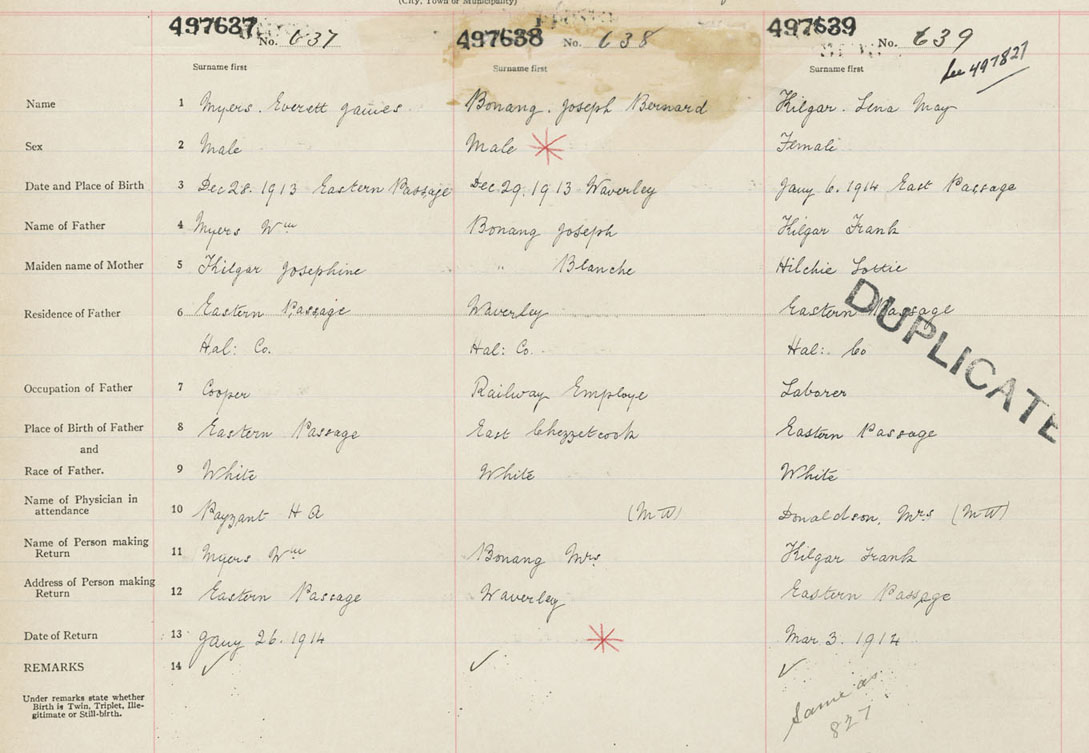 (City, Town or Municipality)
497637 No. 637
497638 No. 638
497639 No. 639
See 497827
Surname first Surname first Surname first
Name 1 Myers. Everett James Bonang. Joseph Bernard Kilgar. Lena May
Sex 2 Male Male Female
Date and Place of Birth 3 Dec 28. 1913 Eastern Passage Dec 29. 1913 Waverley Jany 6. 1914 East Passage
Name of Father 4 Myers Wm Bonang Joseph Kilgar Frank
Maiden name of Mother 5 Kilgar Josephine " Blanche Hilchie Lottie
Residence of Father 6 Eastern Passage Waverley Eastern Passage
Hal: Co. Hal: Co. Hal: Co
DUPLICATE
Occupation of Father 7 Cooper Railway Employe Laborer
Place of Birth of Father 8 Eastern Passage East Chezzetcook Eastern Passage
and
Race of Father. 9 White White White
Name of Physician in
attendance 10 Payzant H A (M W) Donaldson, Mrs (M W)
Name of Person making
Return 11 Myers Wm Bonang Mrs Kilgar Frank
Address of Person making
Return 12 Eastern Passage Waverley Eastern Passage
Date of Return 13 Jany 26. 1914 Mar 3. 1914
REMARKS 14
Under remarks state whether
Birth is Twin, Triplet, Ille-
gitimate or Still-birth.
Same as
827